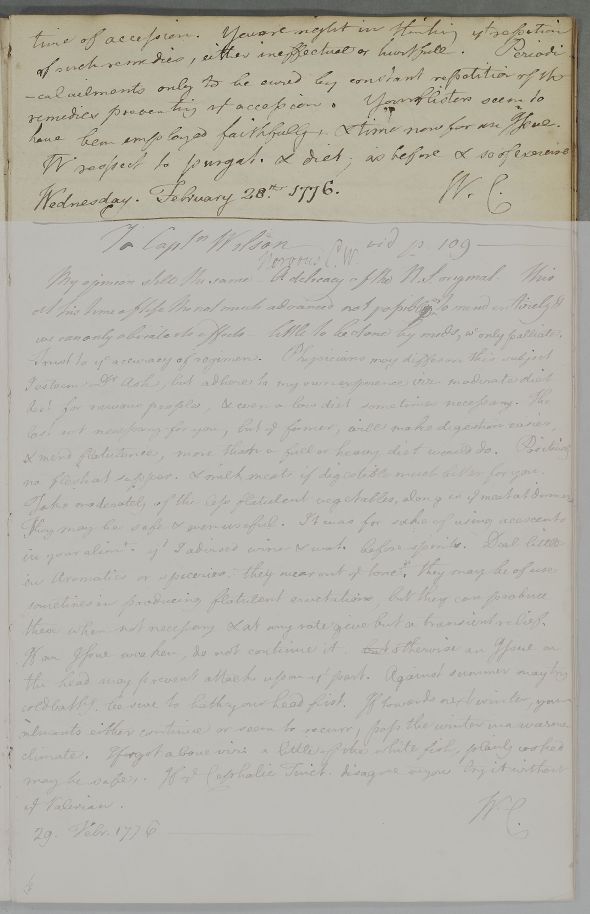 time of accession. You are right in thinking yt repetition
of such remedies, either ineffectual or hurtfull. Periodi
-cal ailments only to be cured by constant repetition of the
remedies preventing yt accession. Your blisters seem to
have been employed faithfully, & time now for an Issue.
Wt respect to purgat. & diet; as before & so of exercise
Wednesday. February 28th 1776. W. C.
To Captn Wilson vid p. 109
Nervous C. W.
My opinion still the same. A delicacy of the N. S. original. This
at his time of life tho not much advanced not possible to mend entirely &
we can only obviate its effects little to be done by meds, wc only palliate.
Trust to yt accuracy of regimen. Physicians may differ on this subject
I esteem Dr Ash, but adhere to my own experience viz moderate diet
best for nervous peoples, & even a low diet sometimes necessary. The
last not necessary for you, but yt former, will make digestion easier,
& mend flatulence, more than a full or heavy diet would do. Positively
no flesh at supper. & milk meats if digestible much better for you.
Take moderately of the less flatulent vegetables, along wt yt meat at dinner
They may be safe & even usefull. It was for sake of using acescents
in your alimt. yt I advised wine & wat. before spirits. Deal little
in Aromatics or spiceries. they wear out yt tone. they may be of use
sometimes in producing flatulent eructations, but they can produce
them when not necessary & at any rate give but a transient relief.
If an Issue weaken, do not continue it. otherwise an Issue on
the head may prevent attacks upon yt part. Against summer may try
cold bathg. be sure to bath your head first. If towards next winter, your
ailments either continue or seem to recurr, pass the winter in a warmer
climate. I forgot above viz a little of the white fish, plainly cooked
may be safe. If yt Cephalic Tinct. disagree wt you try it without
yt Valerian.
29. Febr. 1776 W. C.